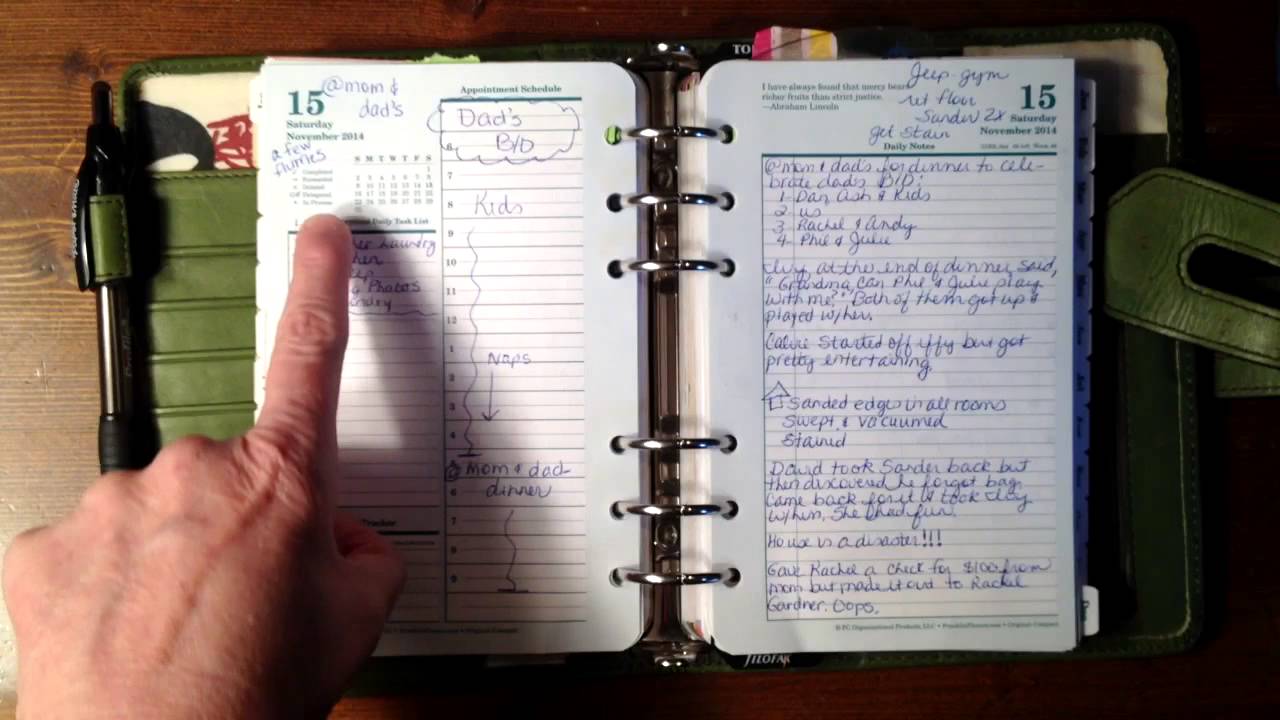 15
@mom &
dad's
Saturday
November 2014
a few
flurries
S M T W T F S
Completed
Forwarded
Deleted
Delegated
In Process
Daily Task List
Laundry
Photos
Tracker
Appointment Schedule
Dad's
B/D
6
7
8 Kids
9
10
11
12
1
Naps
2
3
4
@ mom & dad
6 dinner
7
8
9
TOP
I have always found that mercy bears
richer fruits than strict justice.
—Abraham Lincoln
Jeep-gym
ret floor
Sander 2x
get Stain
15
Saturday
November 2014
Daily Notes
@mom & dad's for dinner to cele-
brate dad's B/D:
1- Dan, Ash & Kids
2. us
3 Rachel & Andy
4- Phil & Julie
at the end of dinner said,
"Grandma, can Phil & Julie play
with me?" Both of them got up &
played w/her.
Started off iffy but got
pretty entertaining.
Sanded edges in all rooms
Swept & vacuumed
Stained
David took Sander back but
then discovered he forgot bag.
Came back for it & took
w/him. She had fun.
House is a disaster!!!
Gave Rachel a check for $100 from
mom but made it out to Rachel
Gardner. Oops.
© FC Organizational Products, LLC • FranklinPlanner.com • Original-Compact
• FranklinPlanner.com • Original-Compact
FILOFAX